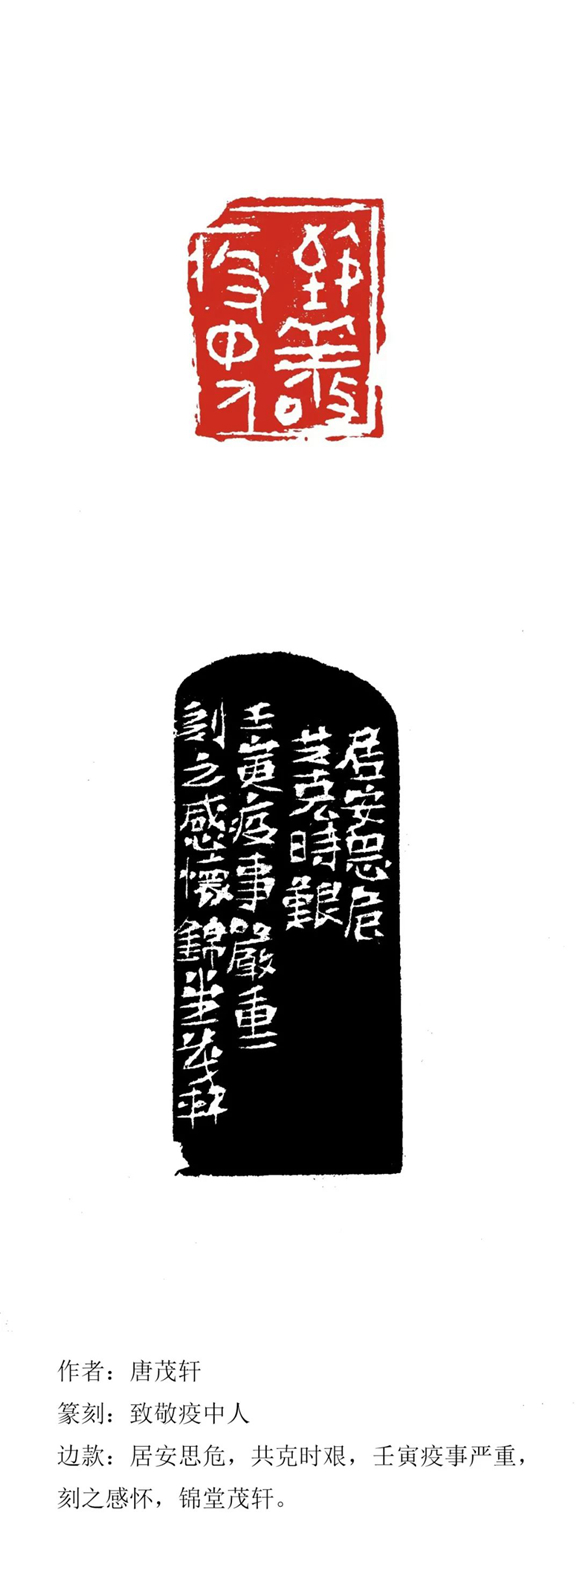 致敬
疫中人
居安思危
共克時艱
壬寅疫事嚴重
刻之感懷錦堂茂軒
作者：唐茂轩
篆刻：致敬疫中人
边款：居安思危，共克时艰，壬寅疫事严重，
刻之感怀，锦堂茂轩。